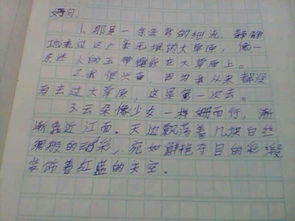 好句:
1.那是一条玉带的相流,静静
地流过这广袤无垠的大草原,像一
条迷人的玉带镶嵌在大草原上。
2.我很兴奋,因为我从来都没
有去过大草原,这是第一次去。
3.云朵像少女一样姗姗而行,渐
渐靠近江面。天边飘荡着几块白丝
般的动彩,宛如鲜艳夺目的彩缎
装饰着红蓝的天空。